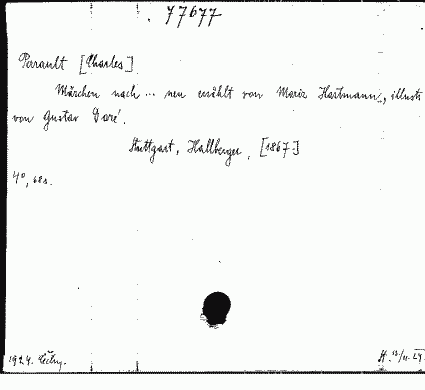 77677
Perrault [Charles]
Märchen nach ... neu erzählt von Moriz Hartmann, illustr.
von Gustav Doré.
Stuttgart, Hallberger, [1867]
4°, 68 s.
1924.
H.